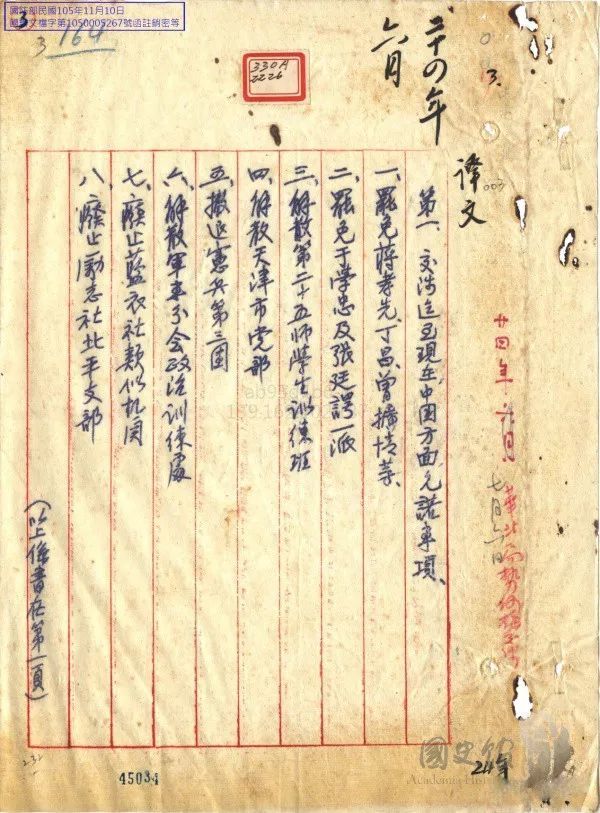 國防部民國105年11月10日
國?文檔字第1050005267號函註銷密等
3
3
164
330A
2226
二十四年
六月
3.
003
譯文
廿四年 六月 華北局勢何梅
七月六日
第一、交涉迄至現在中國方面允諾事項、
一、罷免蔣孝先丁昌曾擴情等、
二、罷免于學忠及張廷諤一派
三、解散第二十五師學生訓練班
四、解散天津市党部
五、撤退憲兵第三團
六、解散軍事分會政治訓練處
七、廢止藍衣社類似机関
八、廢止勵志社北平支部
(以上係書在第一頁)
232
45034
國史館
Academia Hist
24年